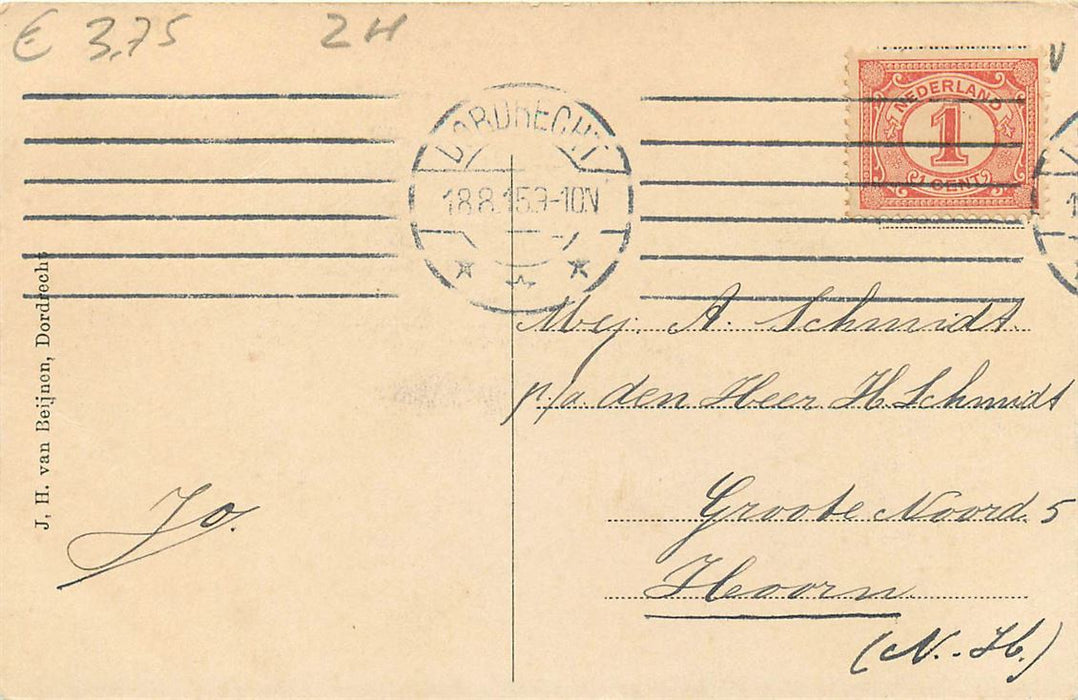 € 3,75 2H
DORDRECHT
18.8.15.9-10N
NEDERLAND
1
CENT
J. H. van Beijnen, Dordrecht
Mej. A. Schmidt
p/a. den Heer H. Schmidt
Groote Noord 5
Hoorn
(N.-H.)
Jo.